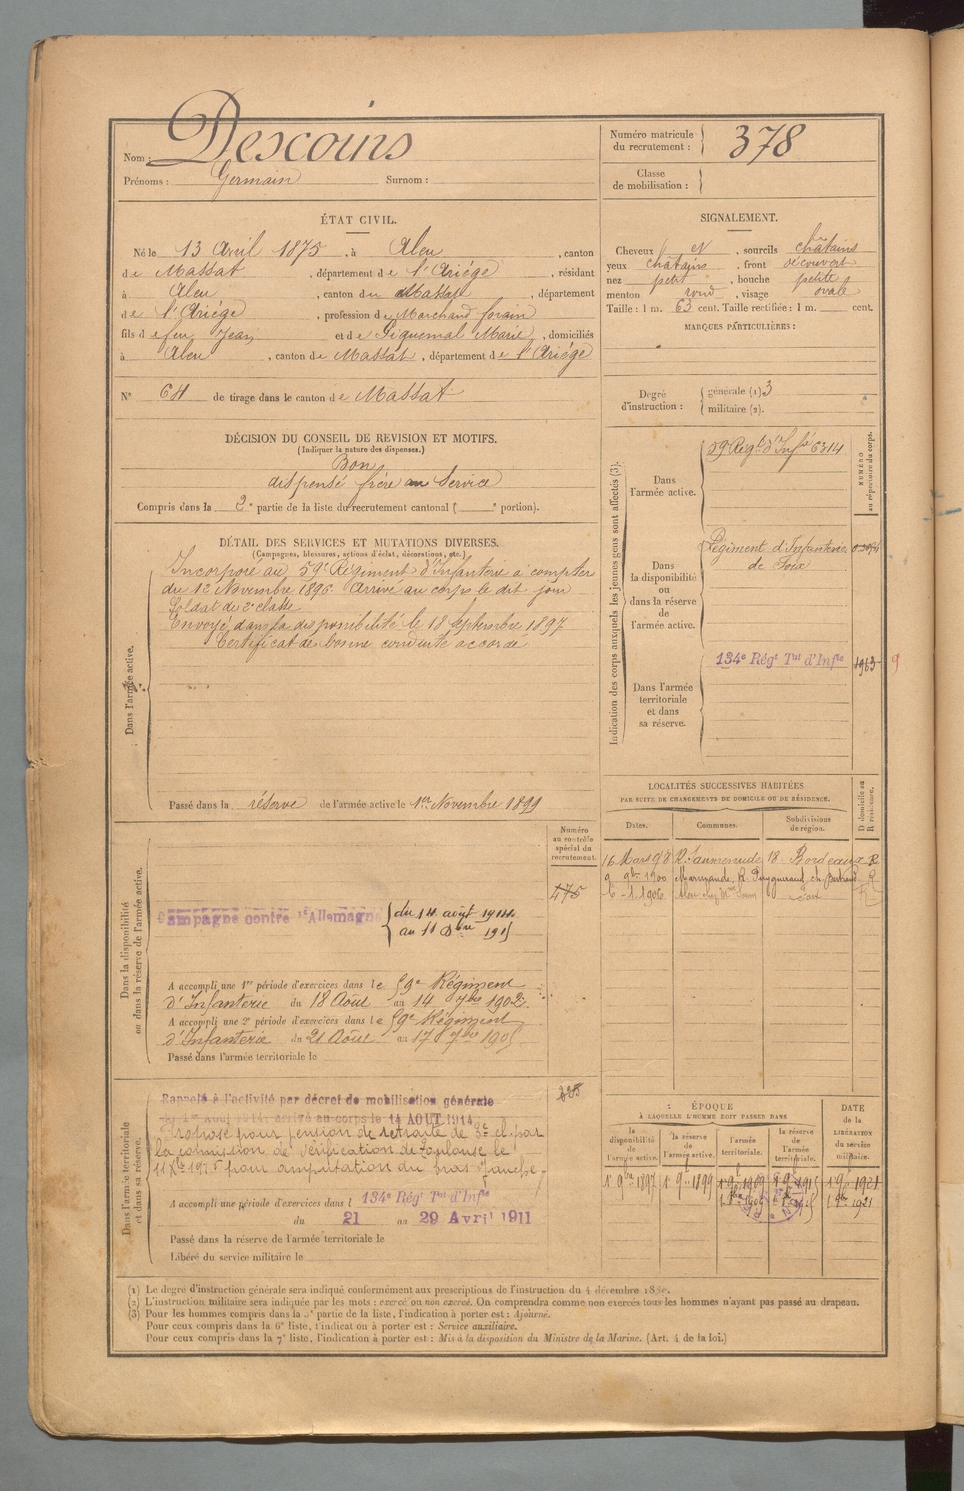 Nom : Descoins
Prénoms : Germain Surnom :
Numéro matricule du recrutement : 378
Classe de mobilisation :
ÉTAT CIVIL.
Né le 13 Avril 1875, à Aleu, canton
de Massat, département de l'Ariége, résidant
à Aleu, canton du Massat, département
de l'Ariége, profession de Marchand forain
fils de feu Jean et de Piquemal Marie, domiciliés
à Aleu, canton de Massat, département de l'Ariége
N° 64 de tirage dans le canton de Massat
SIGNALEMENT.
Cheveux et, sourcils châtains
yeux châtains, front découvert
nez petit, bouche petite
menton rond, visage ovale
Taille : 1 m. 63 cent. Taille rectifiée : 1 m. cent.
MARQUES PARTICULIÈRES :
Degré d'instruction : générale (1) 3
militaire (2).
DÉCISION DU CONSEIL DE REVISION ET MOTIFS.
(Indiquer la nature des dispenses.)
Bon
dispensé frère au Service
Compris dans la 2e partie de la liste du recrutement cantonal ( e portion).
DÉTAIL DES SERVICES ET MUTATIONS DIVERSES.
(Campagnes, blessures, actions d'éclat, décorations, etc.)
Dans l'armée active.
Incorporé au 59e Régiment d'Infanterie à compter
du 12 Novembre 1896. Arrivé au corps le dit jour
Soldat de 2e classe
Envoyé dans la disponibilité le 18 Septembre 1897
Certificat de bonne conduite accordé
Passé dans la réserve de l'armée active le 1er Novembre 1899
Indication des corps auxquels les jeunes gens sont affectés (3).
NUMÉRO au répertoire du corps.
Dans l'armée active.
59 Régt d'Infie 6314
Dans la disponibilité ou dans la réserve de l'armée active.
Régiment d'Infanterie
de Foix
Dans l'armée territoriale et dans sa réserve.
134e Régt Tal d'Infie 1963 9
LOCALITÉS SUCCESSIVES HABITÉES
PAR SUITE DE CHANGEMENTS DE DOMICILE OU DE RÉSIDENCE.
D domicile ou R résidence.
Dates. Communes. Subdivisions de région.
16 Mars 98 18 Bordeaux R
9 9bre 1900 Marmande, R.
6 - 1 1906
Dans la disponibilité ou dans la réserve de l'armée active.
Numéro au contrôle spécial du recrutement.
475
Campagne contre l'Allemagne du 14 août 1914
au 11 Dbre 1915
A accompli une 1re période d'exercices dans le 59e Régiment
d'Infanterie du 18 Août au 14 7bre 1902
A accompli une 2e période d'exercices dans le 59e Régiment
d'Infanterie du 21 Août au 17 7bre 1905
Passé dans l'armée territoriale le
Dans l'armée territoriale et dans sa réserve.
Rappelé à l'activité par décret de mobilisation générale
du 1er Aout 1914, arrivé au corps le 14 AOUT 1914
Proposé pour pension de retraite de 3e cl par
la commission de vérification de Toulouse le
11 Xbre 1915 pour amputation du bras gauche
A accompli une période d'exercices dans l 134e Régt Tal d'Infie
du 21 au 29 Avril 1911
Passé dans la réserve de l'armée territoriale le
Libéré du service militaire le
ÉPOQUE
À LAQUELLE L'HOMME DOIT PASSER DANS
DATE de la LIBÉRATION du service militaire.
la disponibilité de l'armée active. la réserve de l'armée active. l'armée territoriale. la réserve de l'armée territoriale.
1er 9bre 1897 1er 9 1899 1er 9 1909 1er 9 1915 1er 9 1921
(1) Le degré d'instruction générale sera indiqué conformément aux prescriptions de l'instruction du 4 décembre 1889.
(2) L'instruction militaire sera indiquée par les mots : exercé ou non exercé. On comprendra comme non exercés tous les hommes n'ayant pas passé au drapeau.
(3) Pour les hommes compris dans la 5e partie de la liste, l'indication à porter est : Ajourné.
Pour ceux compris dans la 6e liste, l'indication à porter est : Service auxiliaire.
Pour ceux compris dans la 7e liste, l'indication à porter est : Mis à la disposition du Ministre de la Marine. (Art. 4 de la loi.)